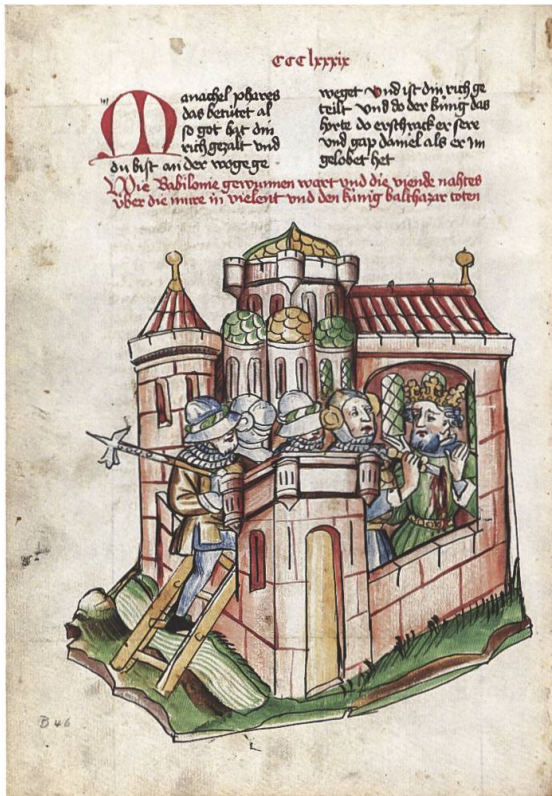 CCClxxxix
Manachel phares
das betútet al
so got hat din
rich gezalt vnd
du bist an der woge ge
weget vnd ist din rich ge
teilt vnd do der kúnig das
horte do erschrack er sere
vnd gap daniel als er im
gelobet het
Wie Babilonie gewunnen wart vnd die viende nahtes
über die mure in vielent vnd den künig balthazar toten
B 46